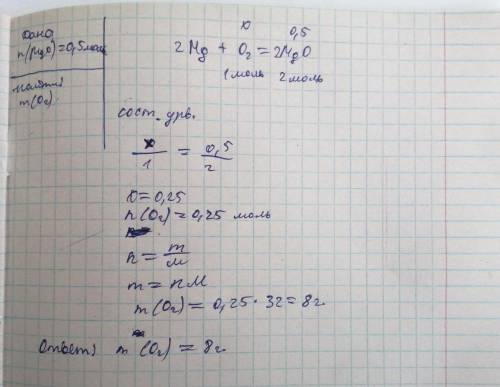 Дано
n(MgO)=0,5моль
найти
m(O₂)
x 0,5
2Mg + O₂ = 2MgO
1моль 2моль
сост. урв.
x/1 = 0,5/2
x=0,25
n(O₂)=0,25 моль
n = m/M
m = nM
m(O₂) = 0,25·32=8г.
Ответ: m(O₂) = 8г.